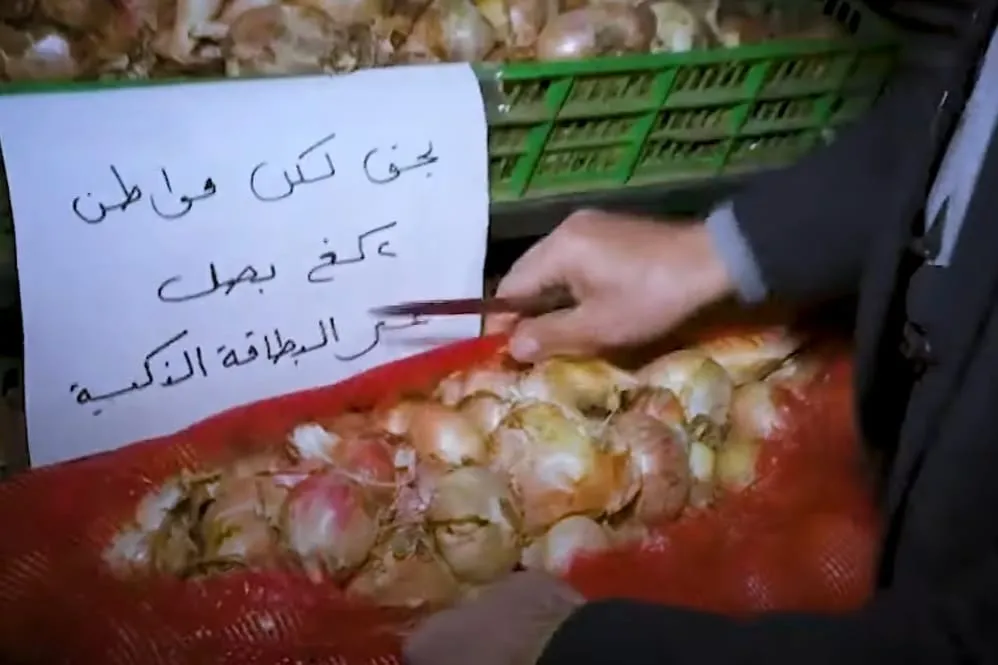 يحق لكل مواطن
٢ كغ بصل
عبر البطاقة الذكية